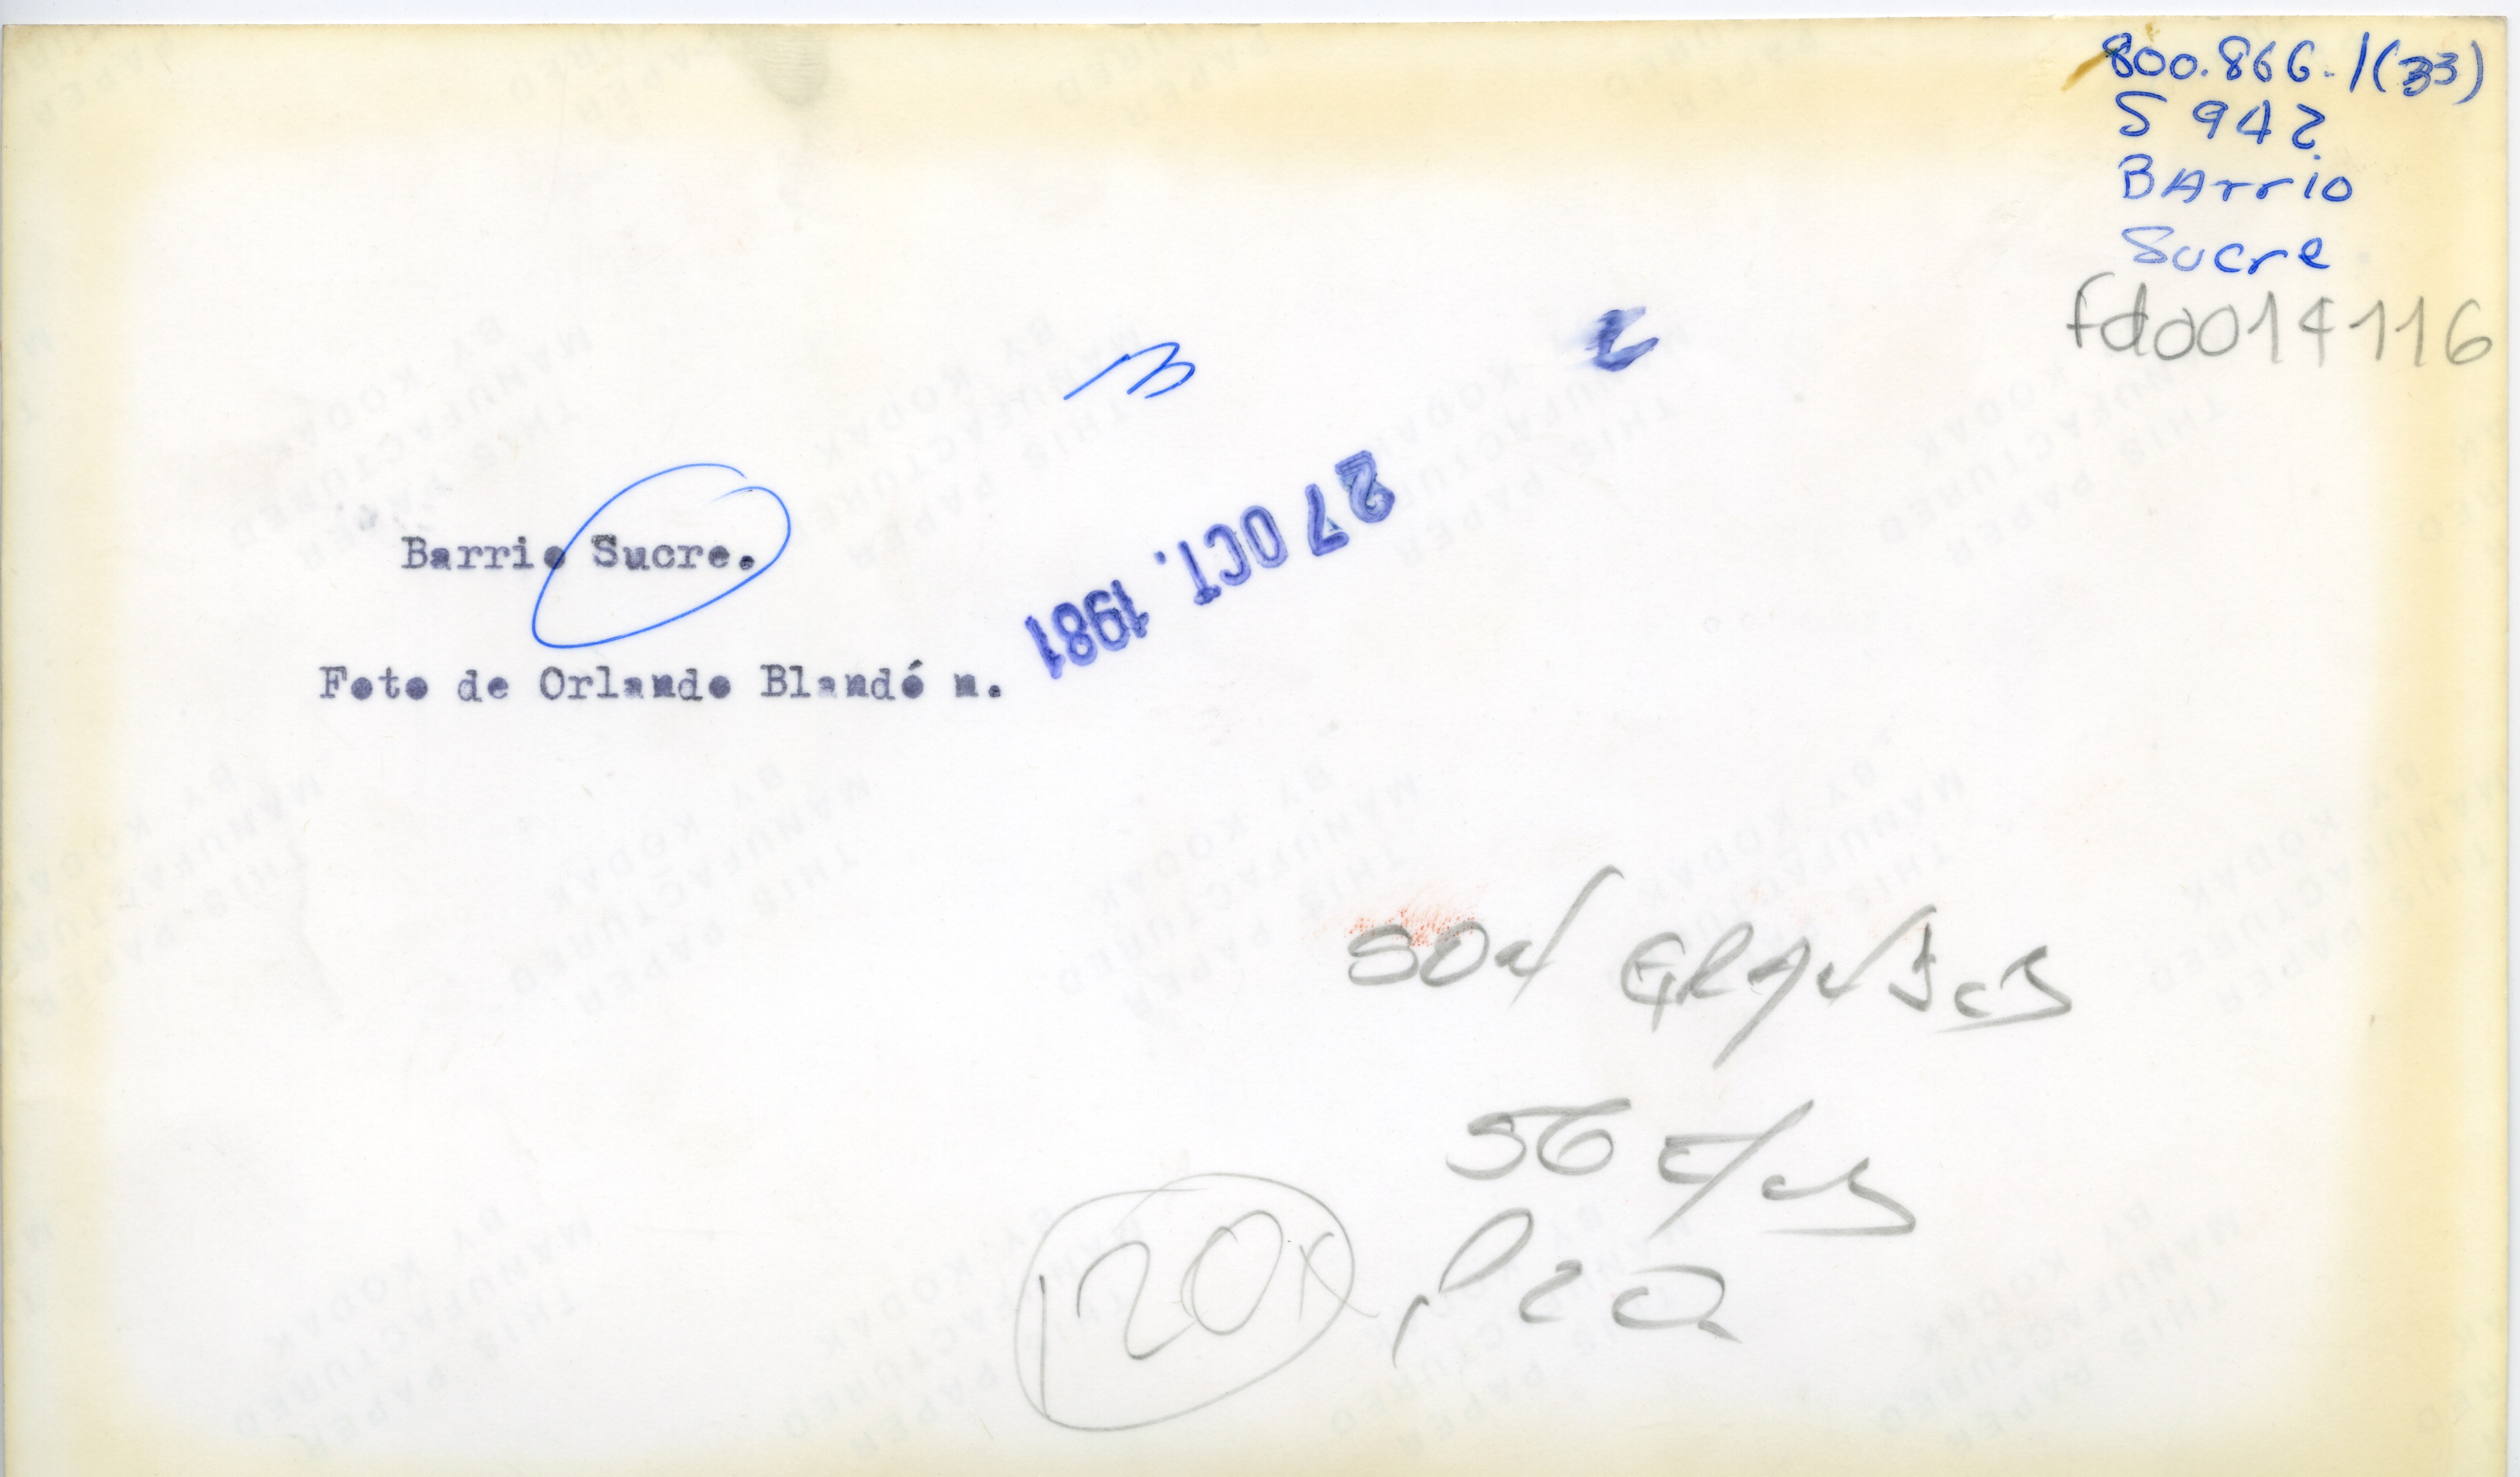 800.866.1(33)
S 942
BArrio
Sucre
fd0014116
Barrio Sucre.
27 OCT. 1981
Foto de Orlando Blandó n.
THIS PAPER
MANUFACTURED
BY KODAK
56
20x